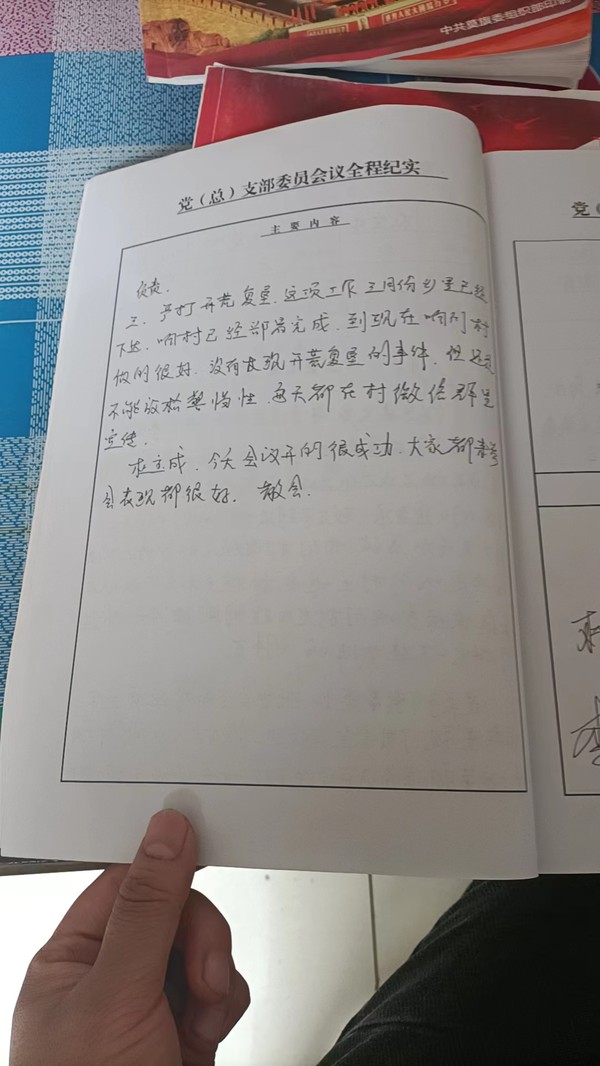 中共莫旗委组织部印制
党（总）支部委员会议全程纪实
主要内容
负责.
三、严打开荒复垦.这项工作三月份乡里已经
下达.响村已经部署完成.到现在响村
做的很好.没有发现开荒复垦的事件.但是
不能放松警惕性.每天都在村微信群里
宣传.
今天会议开的很成功.大家都
会表现都很好.散会.
党（